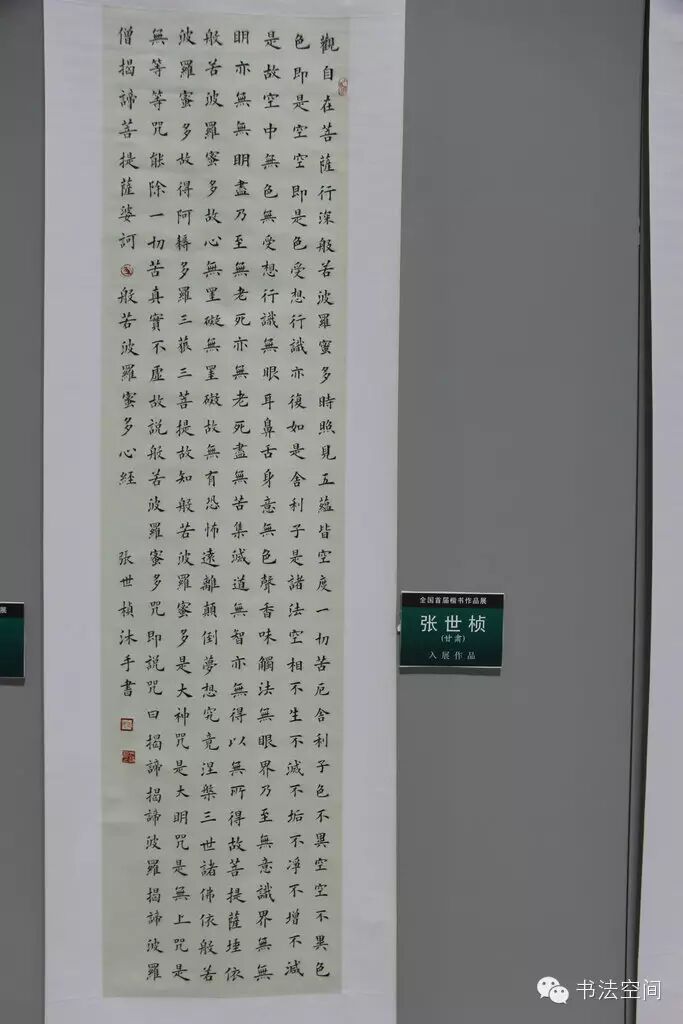 觀自在菩薩行深般若波羅蜜多時照見五蘊皆空度一切苦厄舍利子色不異空空不異色
色即是空空即是色受想行識亦復如是舍利子是諸法空相不生不滅不垢不淨不增不減
是故空中無色無受想行識無眼耳鼻舌身意無色聲香味觸法無眼界乃至無意識界無無
明亦無無明盡乃至無老死亦無老死盡無苦集滅道無智亦無得以無所得故菩提薩埵依
般若波羅蜜多故心無罣礙無罣礙故無有恐怖遠離顛倒夢想究竟涅槃三世諸佛依般若
波羅蜜多故得阿耨多羅三藐三菩提故知般若波羅蜜多是大神咒是大明咒是無上咒是
無等等咒能除一切苦真實不虛故説般若波羅蜜多咒即説咒曰揭諦揭諦波羅揭諦波羅
僧揭諦菩提薩婆訶 般若波羅蜜多心經 張世楨沐手書
全国首届楷书作品展
张世桢
(甘肃)
入展作品
展
书法空间